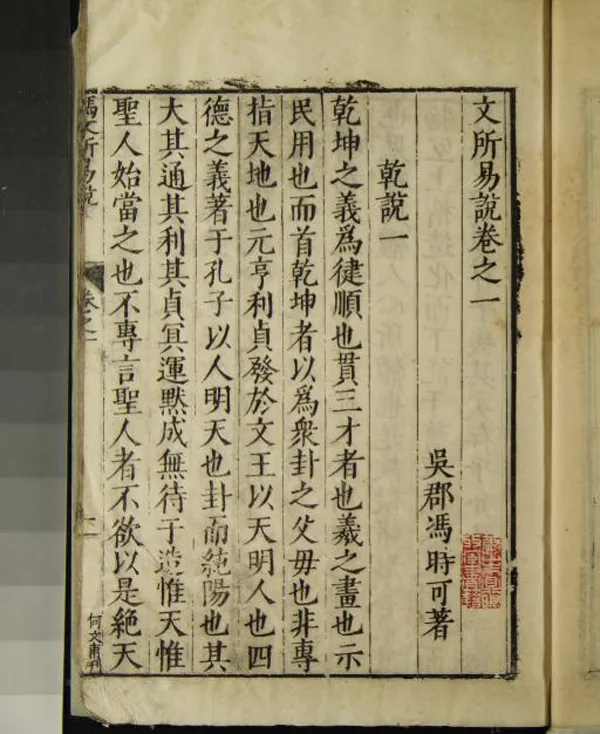 文所易說卷之一
吳郡馮時可著
乾說一
乾坤之義爲健順也貫三才者也羲之畫也示
民用也而首乾坤者以爲衆卦之父母也非專
指天地也元亨利貞發於文王以天明人也四
德之義著于孔子以人明天也卦而純陽也其
大其通其利其貞冥運默成無待于造惟天惟
聖人始當之也不專言聖人者不欲以是絕天
馮文所易說
卷之一
何文甫刊